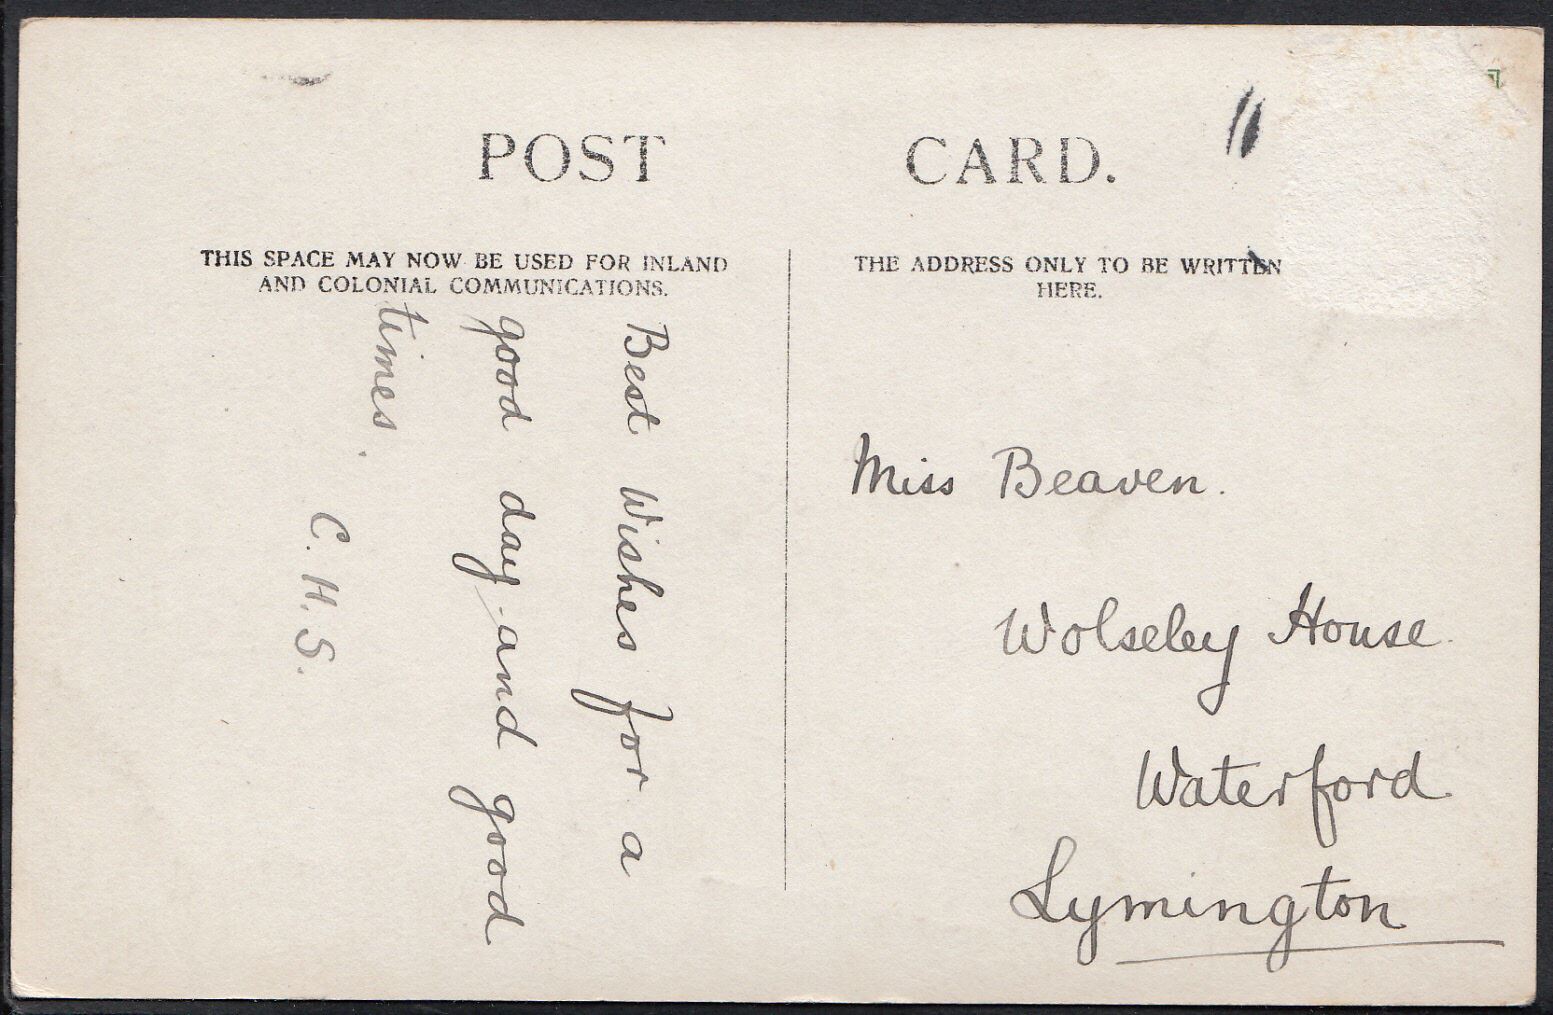 POST CARD.
THIS SPACE MAY NOW BE USED FOR INLAND
AND COLONIAL COMMUNICATIONS.
THE ADDRESS ONLY TO BE WRITTEN
HERE.
Best Wishes for a
good day and good
times.
C. H. S.
Miss Beaven.
Wolseley House
Waterford
Lymington